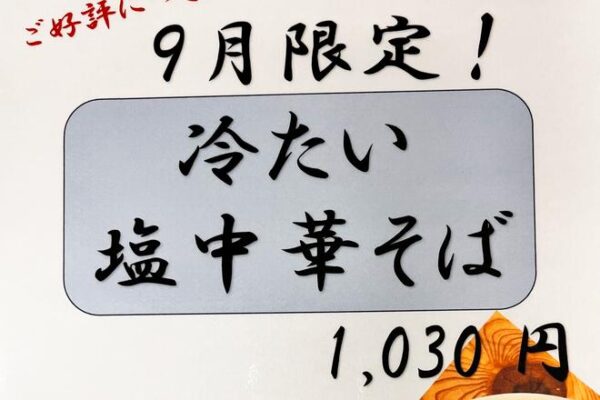 ご好評に
9月限定！
冷たい
塩中華そば
1,030円